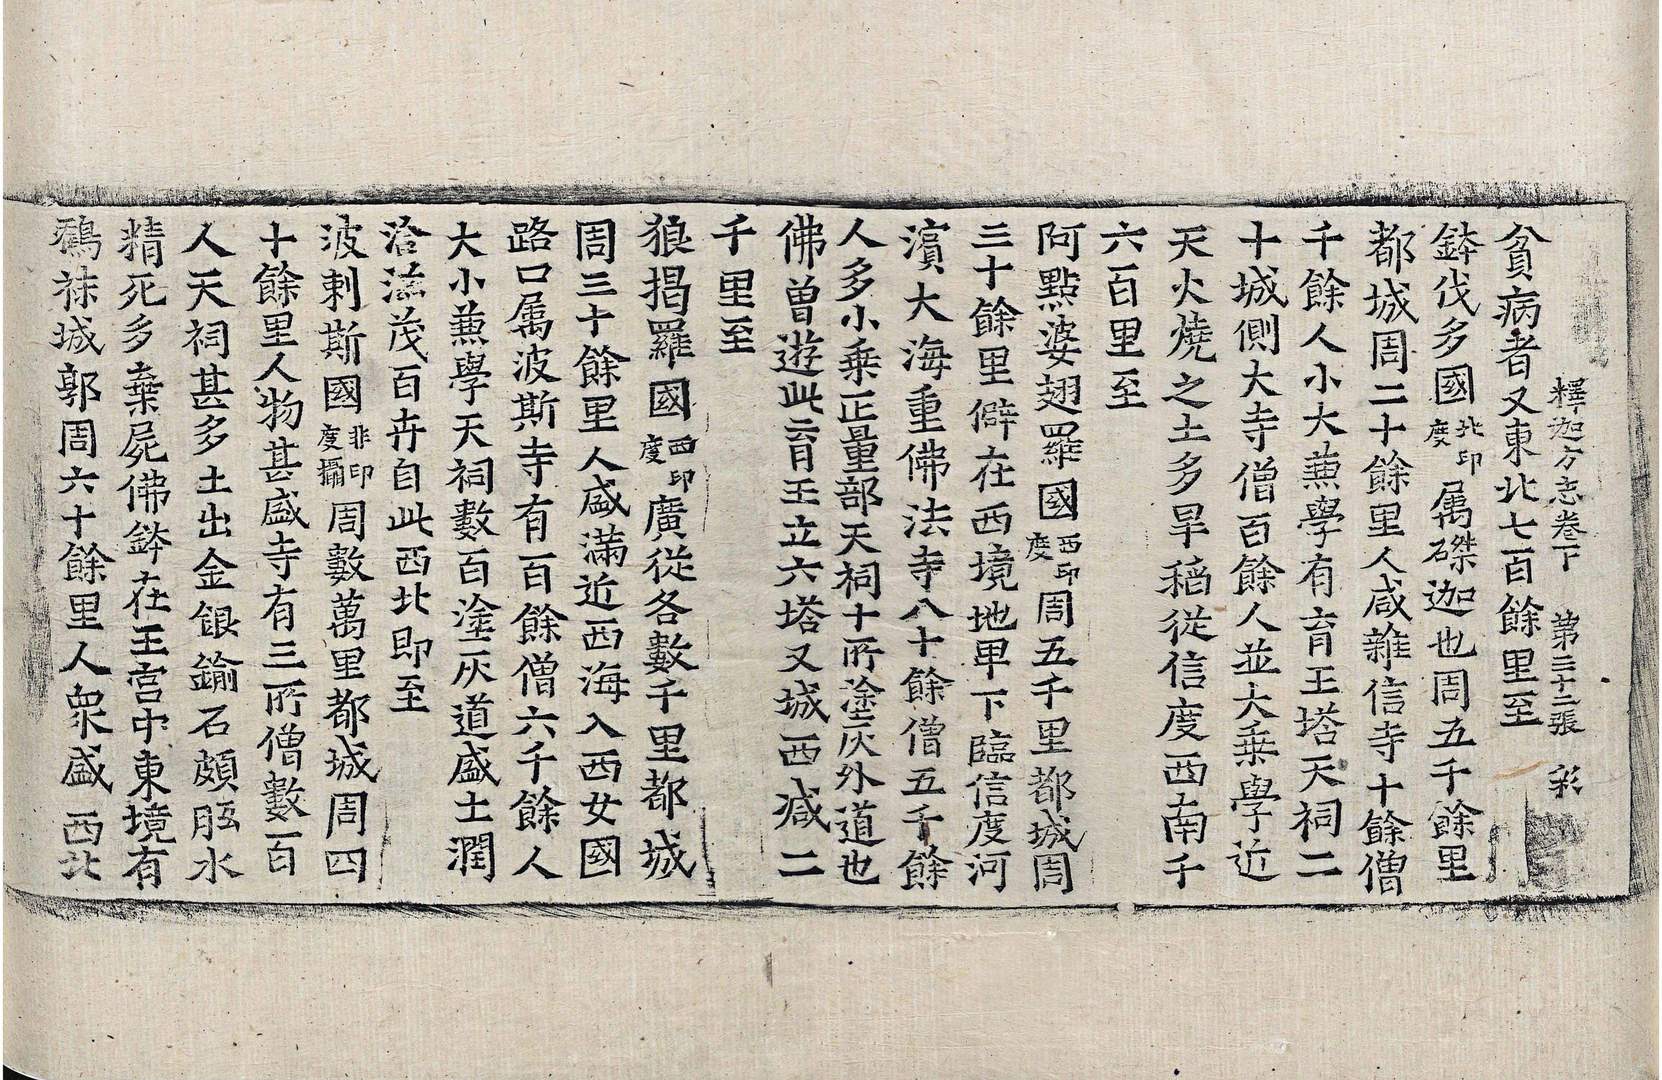 釋迦方志卷下　第三十二張　彩
貧病者又東北七百餘里至
鉢伐多國北印度屬磔迦也周五千餘里
都城周二十餘里人咸雜信寺十餘僧
千餘人小大兼學有育王塔天祠二
十城側大寺僧百餘人並大乗學近
天火燒之土多旱稻從信度西南千
六百里至
阿點婆翅羅國西印度周五千里都城周
三十餘里僻在西境地卑下臨信度河
濱大海重佛法寺八十餘僧五千餘
人多小乗正量部天祠十所塗灰外道也
佛曾遊此育王立六塔又城西减二
千里至
狼揭羅國西印度廣從各數千里都城
周三十餘里人盛滿近西海入西女國
路口屬波斯寺有百餘僧六千餘人
大小兼學天祠數百塗灰道盛土潤
沿滋茂百卉自此西北即至
波剌斯國非印度攝周數萬里都城周四
十餘里人物甚盛寺有三所僧數百
人天祠甚多土出金銀鍮石頗胝水
精死多棄屍佛鉢在王宮中東境有
鶴秣城郭周六十餘里人衆盛西北